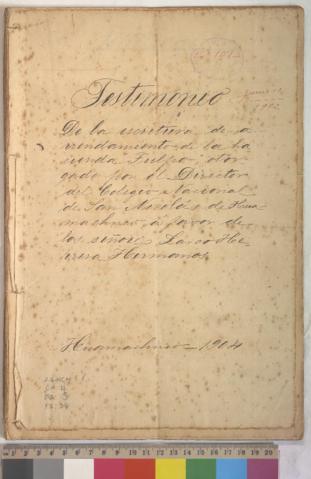 Testimonio
De la escritura de a
rrendamiento de la ha
cienda Tulpo, otor
gada por el Director
del Colegio Nacional
de San Nicolás de Hua
machuco, á favor de
los señores Larco He
rrera Hermanos
Huamachuco - 1904
1 2 3 4 5 6 7 8 9 10 11 12 13 14 15 16 17 18 19 20